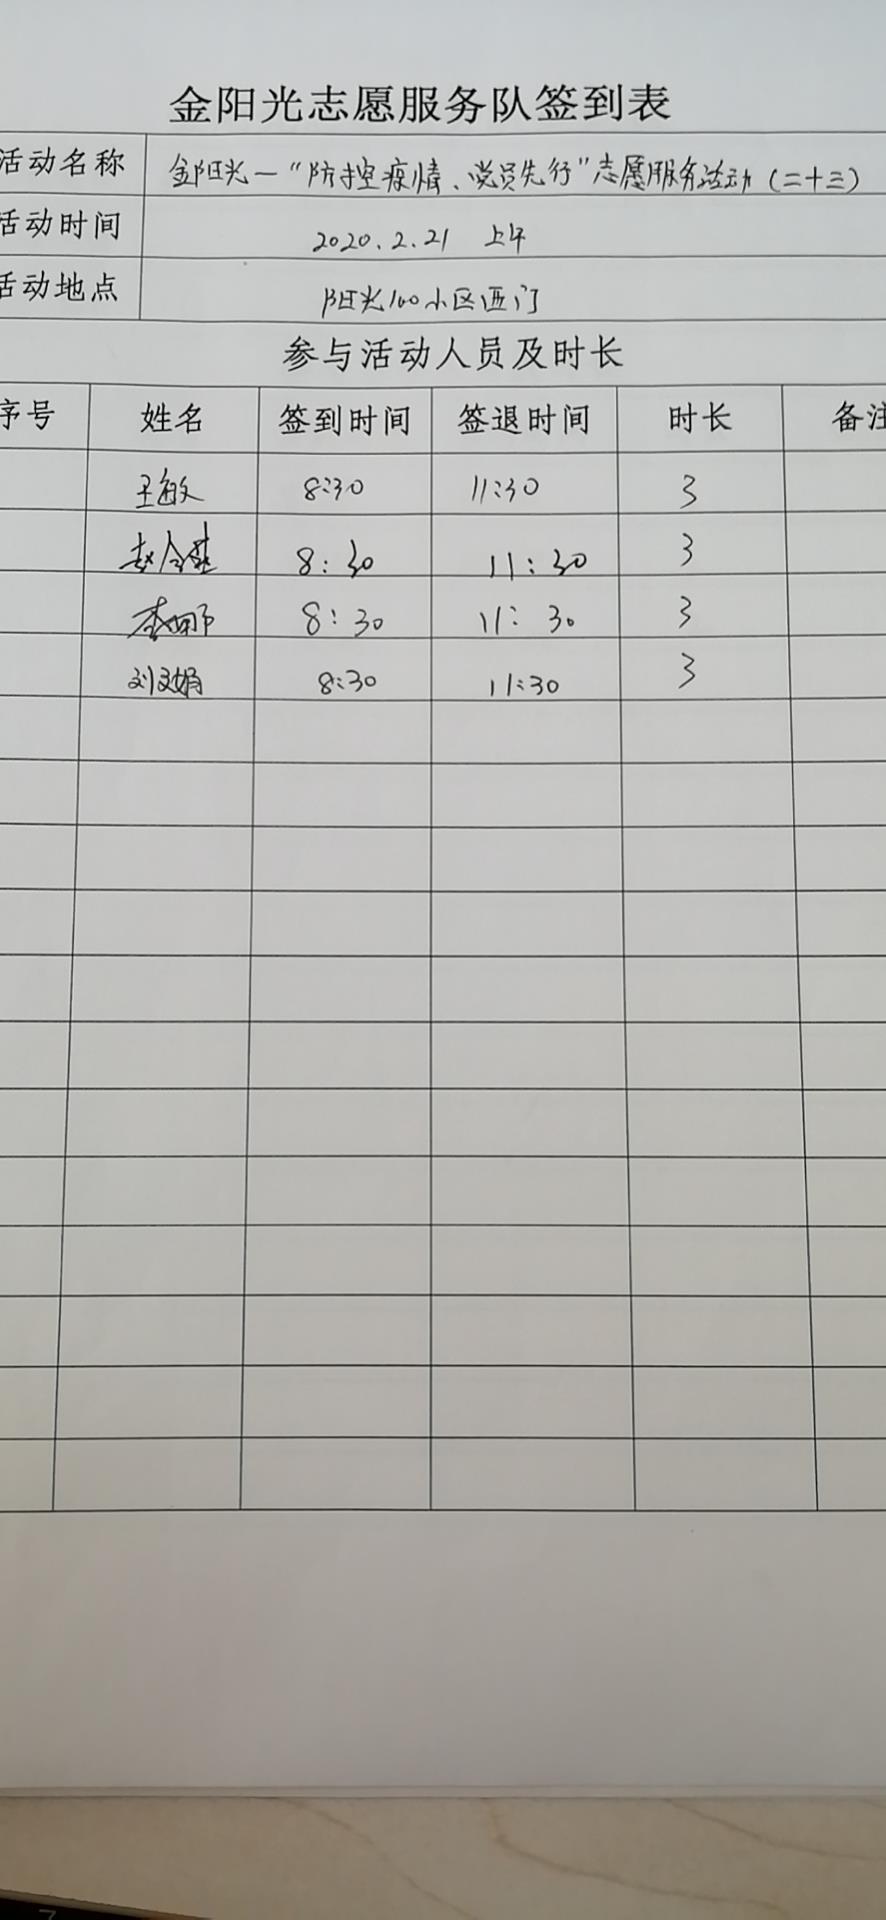 金阳光志愿服务队签到表
活动名称 金阳光—“防控疫情、党员先行”志愿服务活动(二十三)
活动时间 2020.2.21 上午
活动地点 阳光100小区西门
参与活动人员及时长
序号 姓名 签到时间 签退时间 时长 备注
王敏 8:30 11:30 3
赵 8:30 11:30 3
李娜 8:30 11:30 3
刘文娟 8:30 11:30 3